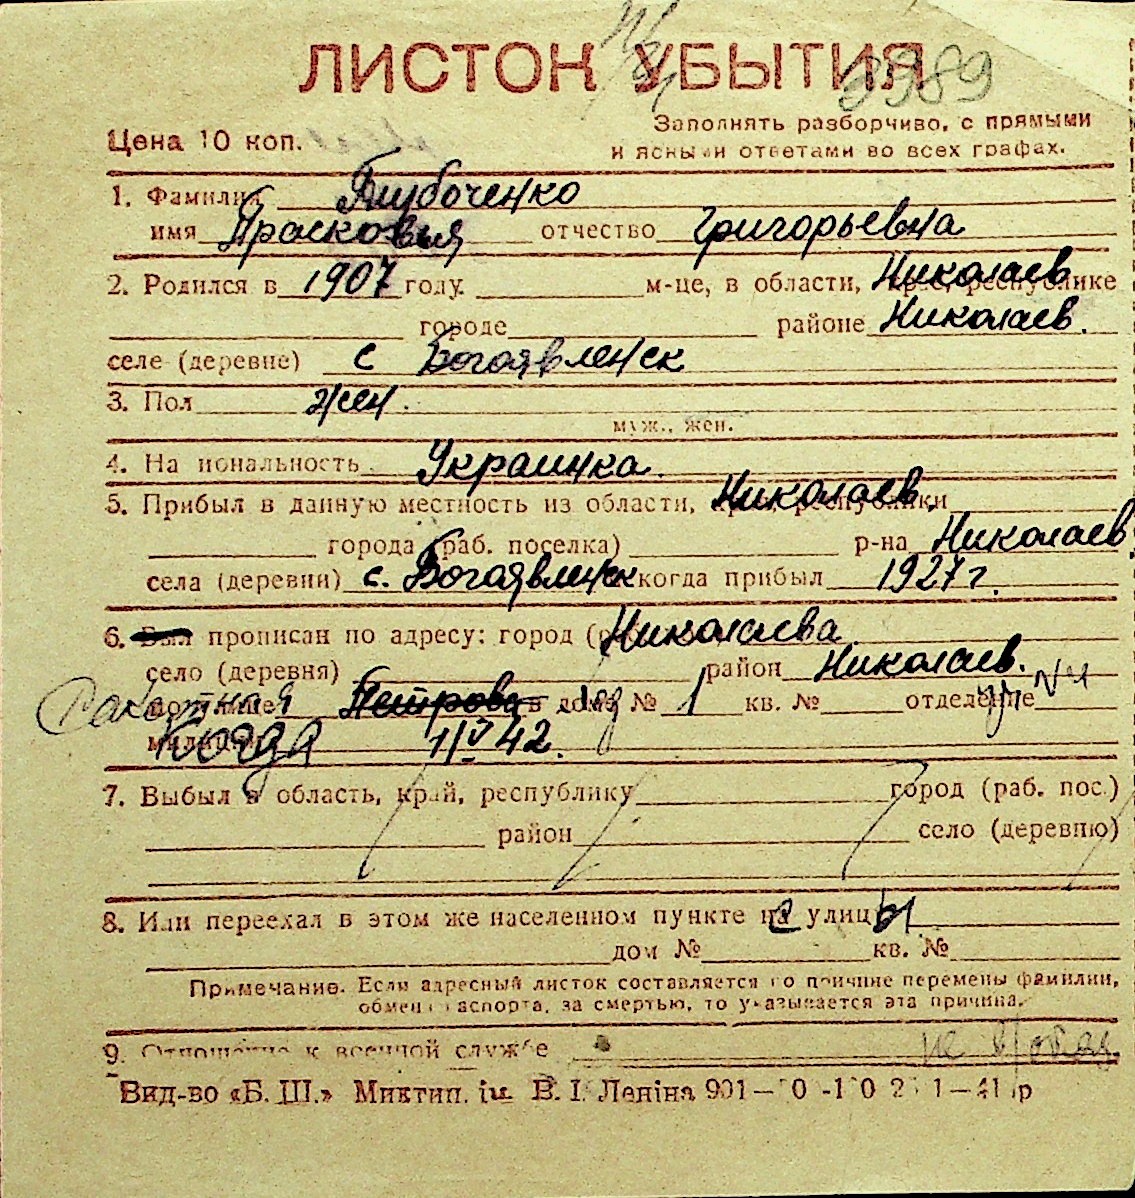 ЛИСТОК УБЫТИЯ
3989
Цена 10 коп.
Заполнять разборчиво, с прямыми
и ясными ответами во всех графах.
1. Фамилия
имя Прасковия отчество Григорьевна
2. Родился в 1907 году. м-це, в области, крае, республике Николаев
городе районе Николаев.
селе (деревне) с Богоявленск
3. Пол жен.
муж., жен.
4. Национальность Украинка.
5. Прибыл в данную местность из области, края, республики Николаев.
города (раб. поселка) р-на Николаев
села (деревни) с. Богоявленск когда прибыл 1927 г.
6. Был прописан по адресу: город Николаева
село (деревня) район Николаев.
Петрова в доме № 1 кв. № отделение
милиции Когда 1/V 42.
7. Выбыл в область, край, республику город (раб. пос.)
район село (деревню)
8. Или переехал в этом же населенном пункте с улицы
дом № кв. №
Примечание. Если адресный листок составляется по причине перемены фамилии,
обмена паспорта, за смертью, то указывается эта причина.
9. Отношение к военной службе
Вид-во «Б. Ш.» Миктип. ім. В. І. Леніна